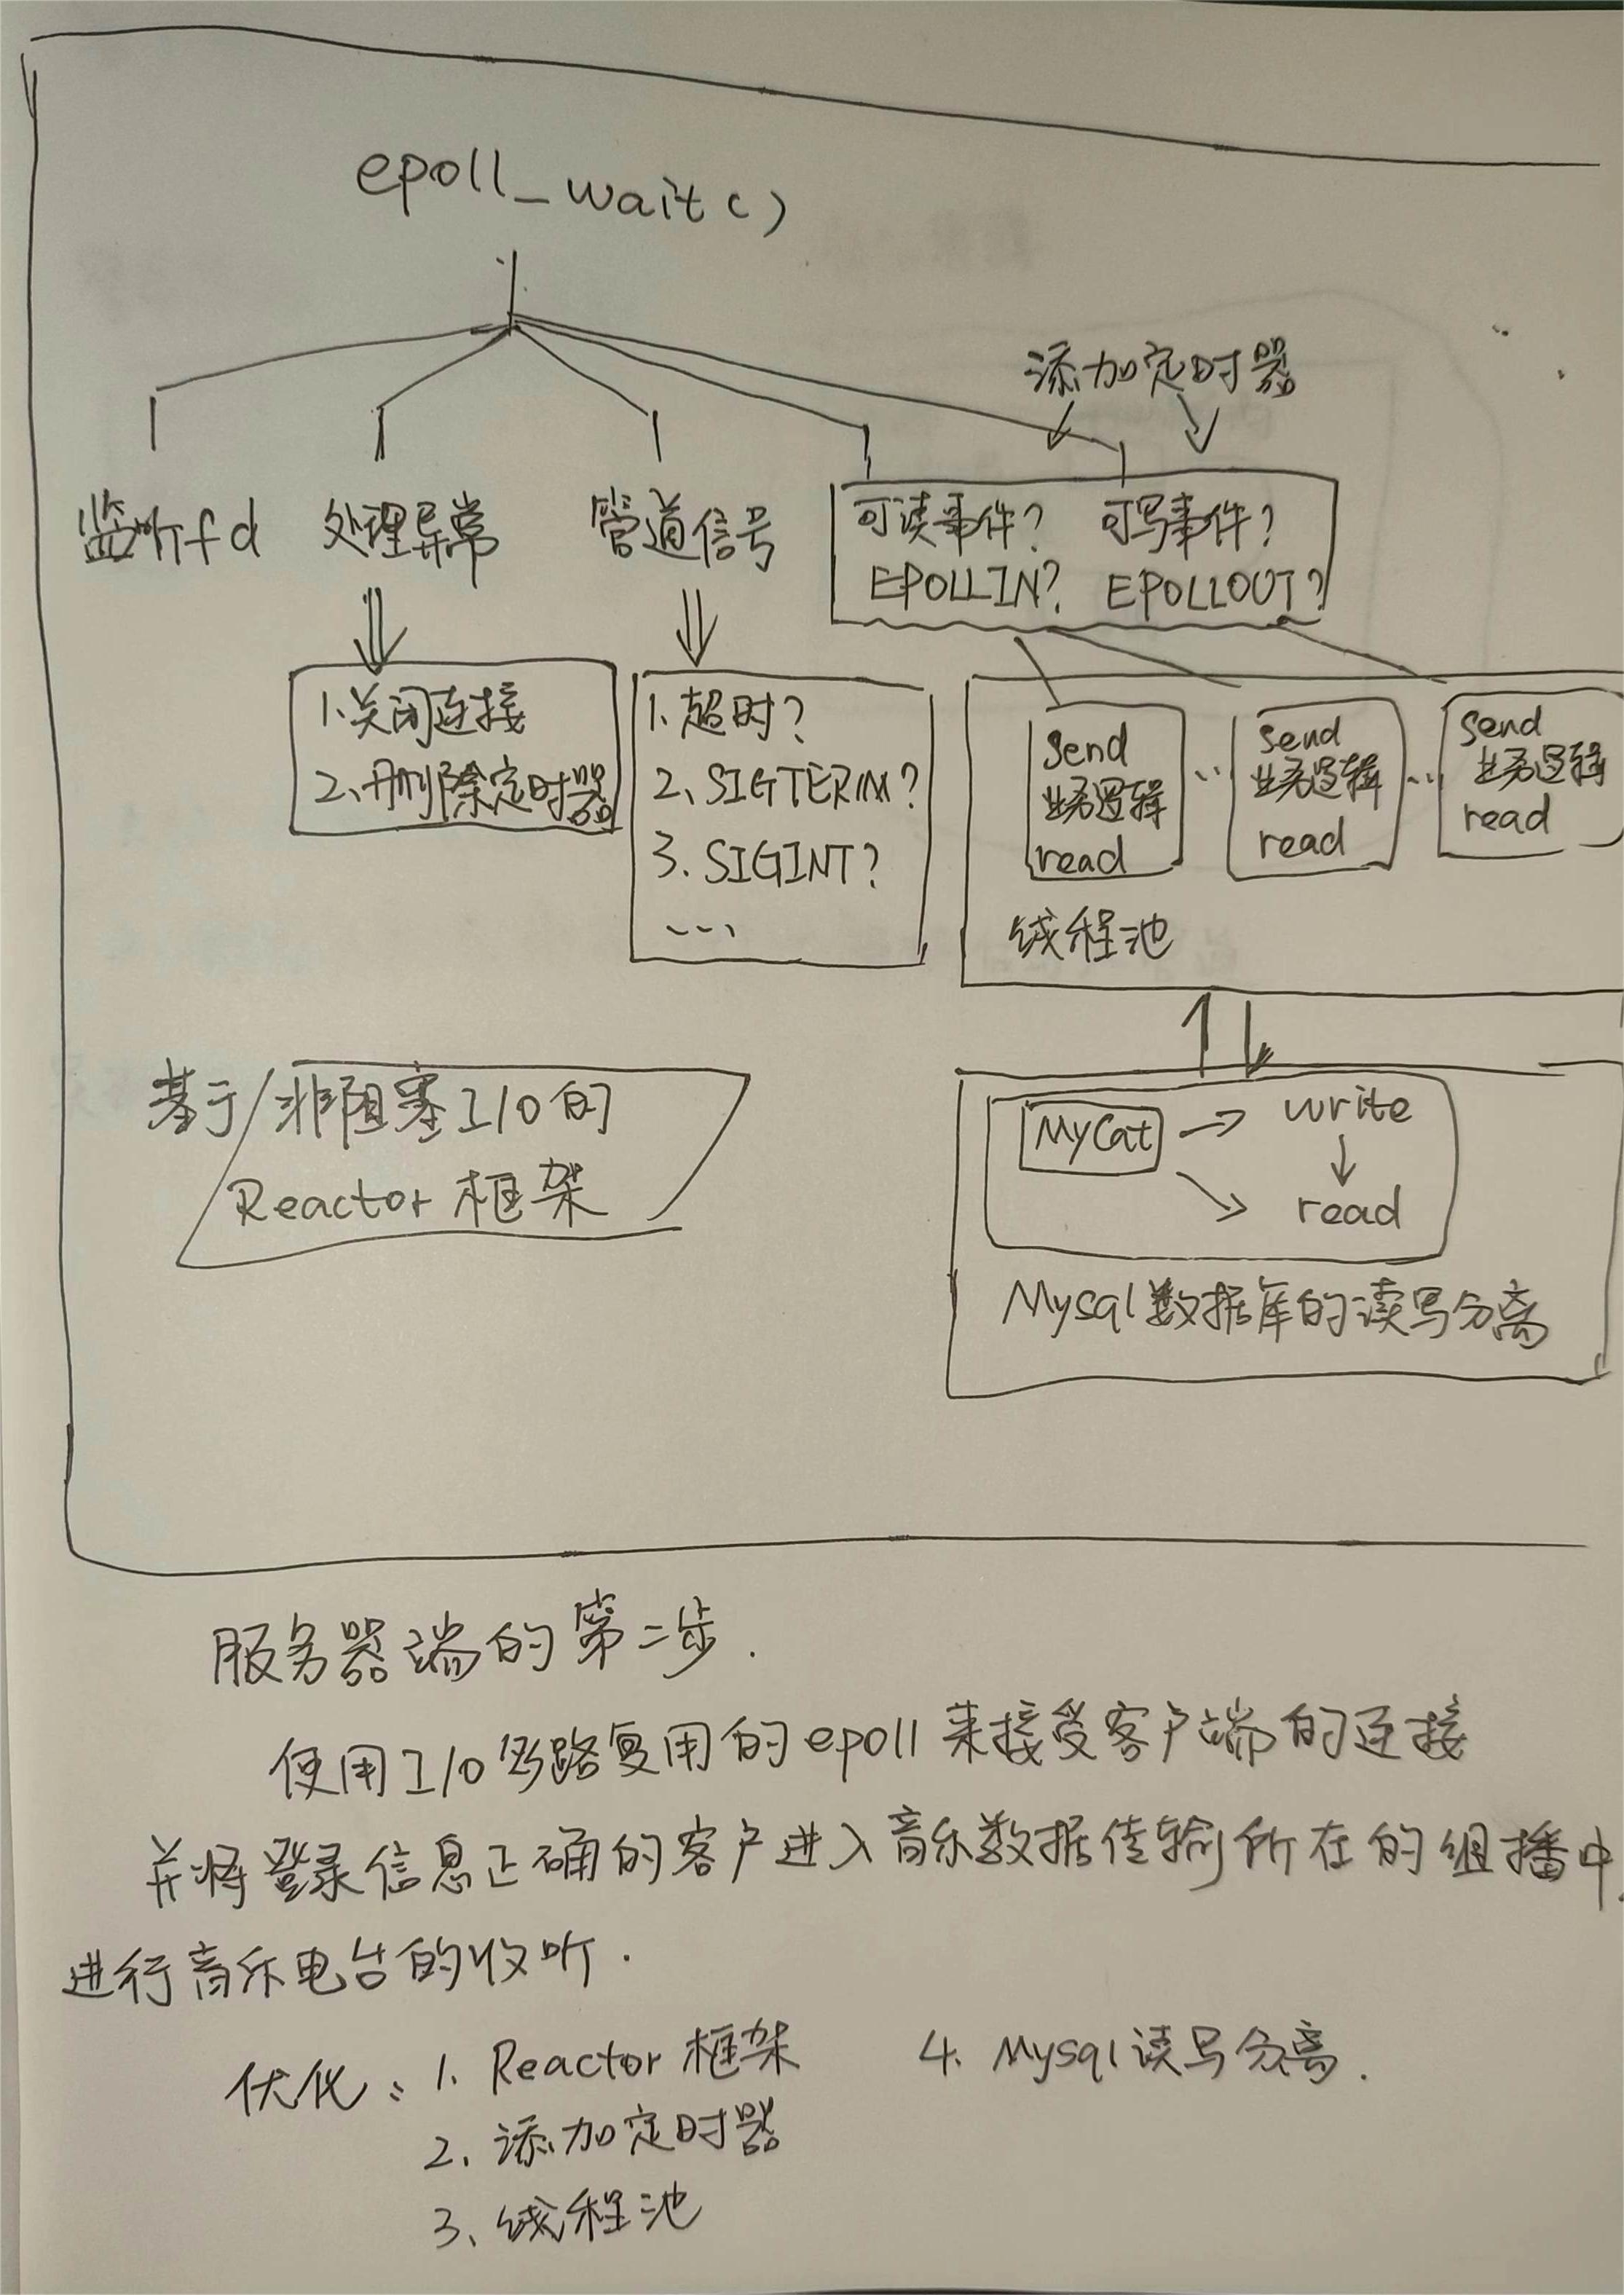 epoll_wait()
添加定时器
监听fd
处理异常
管道信号
可读事件? 可写事件?
EPOLLIN? EPOLLOUT?
1.关闭连接
2、删除定时器
1、超时?
2、SIGTERM?
3. SIGINT?
...
send
业务逻辑
read
...
send
业务逻辑
read
...
send
业务逻辑
read
线程池
基于非阻塞I/O的
Reactor 框架
MyCat → write
↓
read
Mysql数据库的读写分离
服务器端的第二步.
使用I/O多路复用的epoll来接受客户端的连接
并将登录信息正确的客户进入音乐数据传输所在的组播中,
进行音乐电台的收听.
优化: 1. Reactor 框架
2. 添加定时器
3、线程池
4. Mysql读写分离.